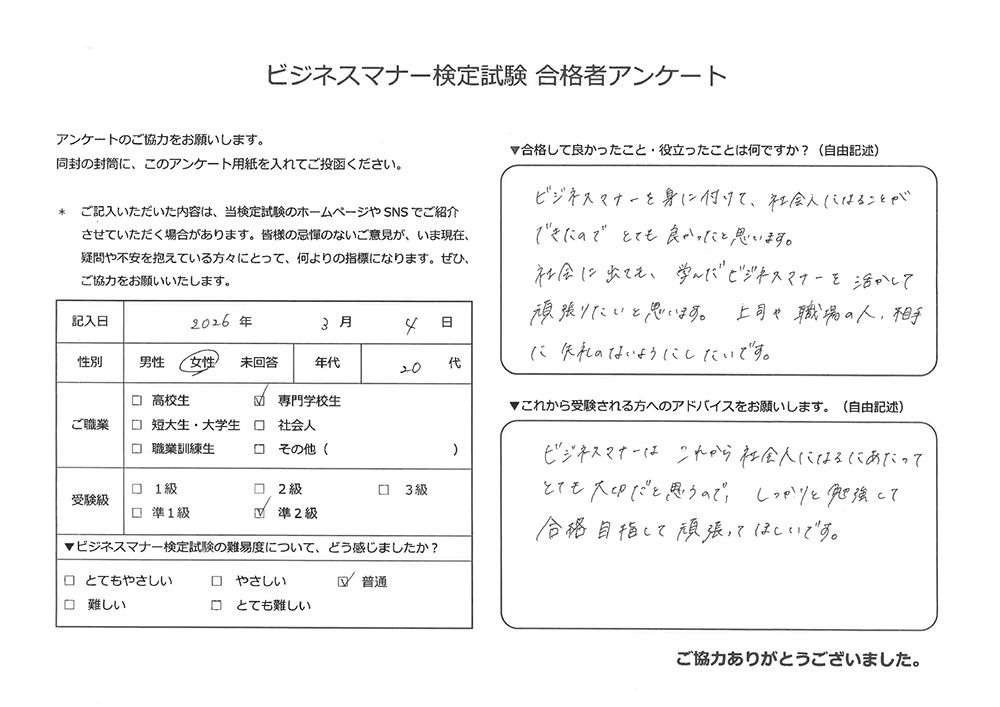 ビジネスマナー検定試験 合格者アンケート
アンケートのご協力をお願いします。
同封の封筒に、このアンケート用紙を入れてご投函ください。
* ご記入いただいた内容は、当検定試験のホームページやSNSでご紹介
させていただく場合があります。皆様の忌憚のないご意見が、いま現在、
疑問や不安を抱えている方々にとって、何よりの指標になります。ぜひ、
ご協力をお願いいたします。
記入日 2026 年 3 月 4 日
性別 男性 女性 未回答 年代 20 代
ご職業
□ 高校生 ☑ 専門学校生
□ 短大生・大学生 □ 社会人
□ 職業訓練生 □ その他（ ）
受験級
□ 1級 □ 2級 □ 3級
□ 準1級 ☑ 準2級
▼ビジネスマナー検定試験の難易度について、どう感じましたか？
□ とてもやさしい □ やさしい ☑ 普通
□ 難しい □ とても難しい
▼合格して良かったこと・役立ったことは何ですか？（自由記述）
ビジネスマナーを身に付けて、社会人になることが
できたので とても良かったと思います。
社会に出ても、学んだビジネスマナーを活かして
頑張りたいと思います。 上司や職場の人、相手
に失礼のないようにしたいです。
▼これから受験される方へのアドバイスをお願いします。（自由記述）
ビジネスマナーは これから社会人になるにあたって
とても大切だと思うので、 しっかりと勉強して
合格目指して頑張ってほしいです。
ご協力ありがとうございました。